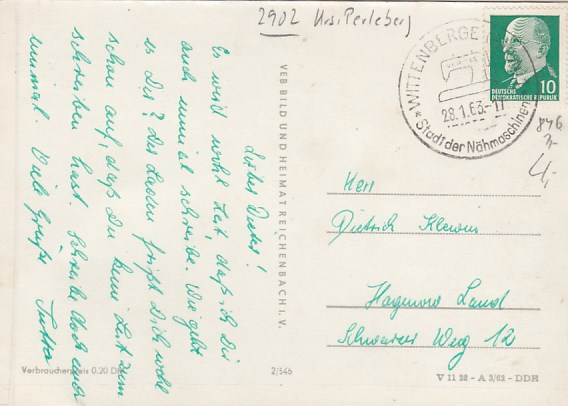 2902 Krs. Perleberg
WITTENBERGE
28.1.63.-11
* Stadt der Nähmaschinen
10
DEUTSCHE
DEMOKRATISCHE REPUBLIK
846
4,-
Lieber Dieter!
Es wird wohl Zeit, daß ich Dir
auch einmal schreibe. Wie geht
es Dir? Das Leder frißt Dich wohl
schon auf, daß Du keine Zeit zum
schreiben hast. Schreibe doch auch
einmal. Viele Grüße Jutta
VEB BILD UND HEIMAT REICHENBACH I. V.
Herr
Dietrich
Land
Schwarzer Weg 12
Verbraucherpreis 0,20 DM
2/546
V 11 28 - A 3/62 - DDR